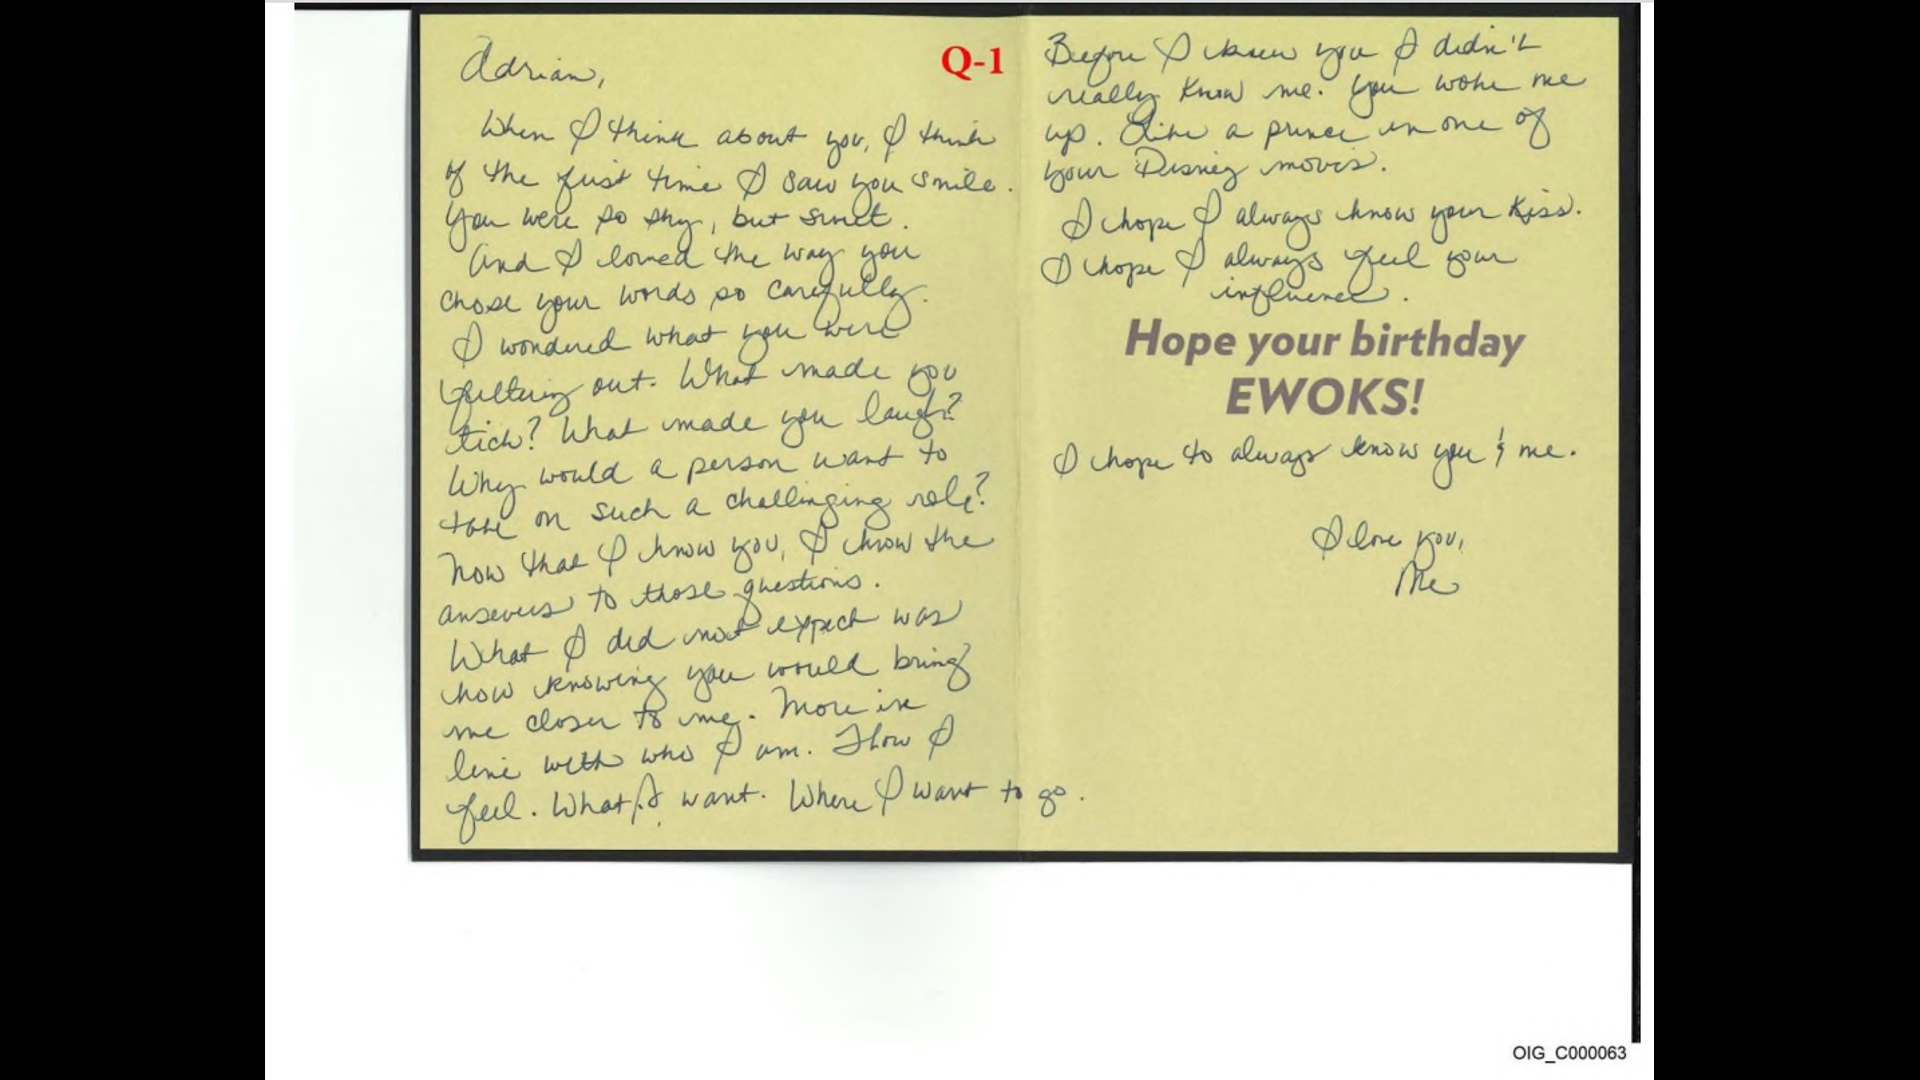 Adrian,
Q-1
When I think about you, I think
of the first time I saw you smile.
You were so shy, but sweet.
And I loved the way you
chose your words so carefully.
I wondered what you were
filtering out. What made you
tick? What made you laugh?
Why would a person want to
take on such a challenging role?
Now that I know you, I know the
answers to those questions.
What I did not expect was
how knowing you would bring
me closer to me. More in
line with who I am. How I
feel. What I want. Where I want to go.
Before I knew you I didn't
really know me. You woke me
up. Like a prince in one of
your Disney movies.
I hope I always know your kiss.
I hope I always feel your
influence.
Hope your birthday
EWOKS!
I hope to always know you & me.
I love you,
Me
OIG_C000063